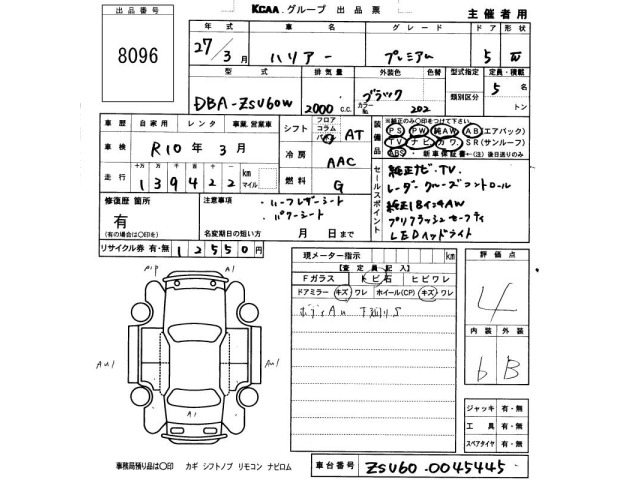 出品番号
8096
KCAA.グループ 出品票
主催者用
年式 車名 グレード ドア 形状
27/3月 ハリアー プレミアム 5 W
型式 排気量 外装色 色替 型式指定 定員・積載
類別区分
DBA-ZSU60W 2000 c.c. ブラック カラーNo. 202 5 名
トン
車歴 自家用 レンタ 事業.営業車
車検 R10年 3月
走行 十万 万 千 百 十 一 km マイル
139422
シフト フロア コラム AT
冷房 AAC
燃料 G
装備品
※純正のみ○印をつけて下さい.
PS PW 純AW AB(エアバック)
TV ナビ カワ SR(サンルーフ)
ABS ・新車保証書←(注)後日送りのみ
セールスポイント
純正ナビ・TV.
レーダークルーズコントロール
純正18インチAW
プリクラッシュセーフティ
LEDヘッドライト
修復歴 箇所
有
(有の場合は○印)
注意事項
・ハーフレザーシート
・パワーシート
名変期日の短い方 月 日まで
リサイクル券 有・無 12550円
現メーター指示 km
【査定員記入】
Fガラス トビ石 ヒビワレ
ドアミラー キズ ワレ ホイール(CP) キズ ワレ
ボディAU 下廻りS
評価点
4
内装 外装
6 B
A1P A1
AU1 AU1
A1
ジャッキ 有・無
工具 有・無
スペアタイヤ 有・無
事務局預り品は○印 カギ シフトノブ リモコン ナビロム
車台番号 ZSU60-0045445